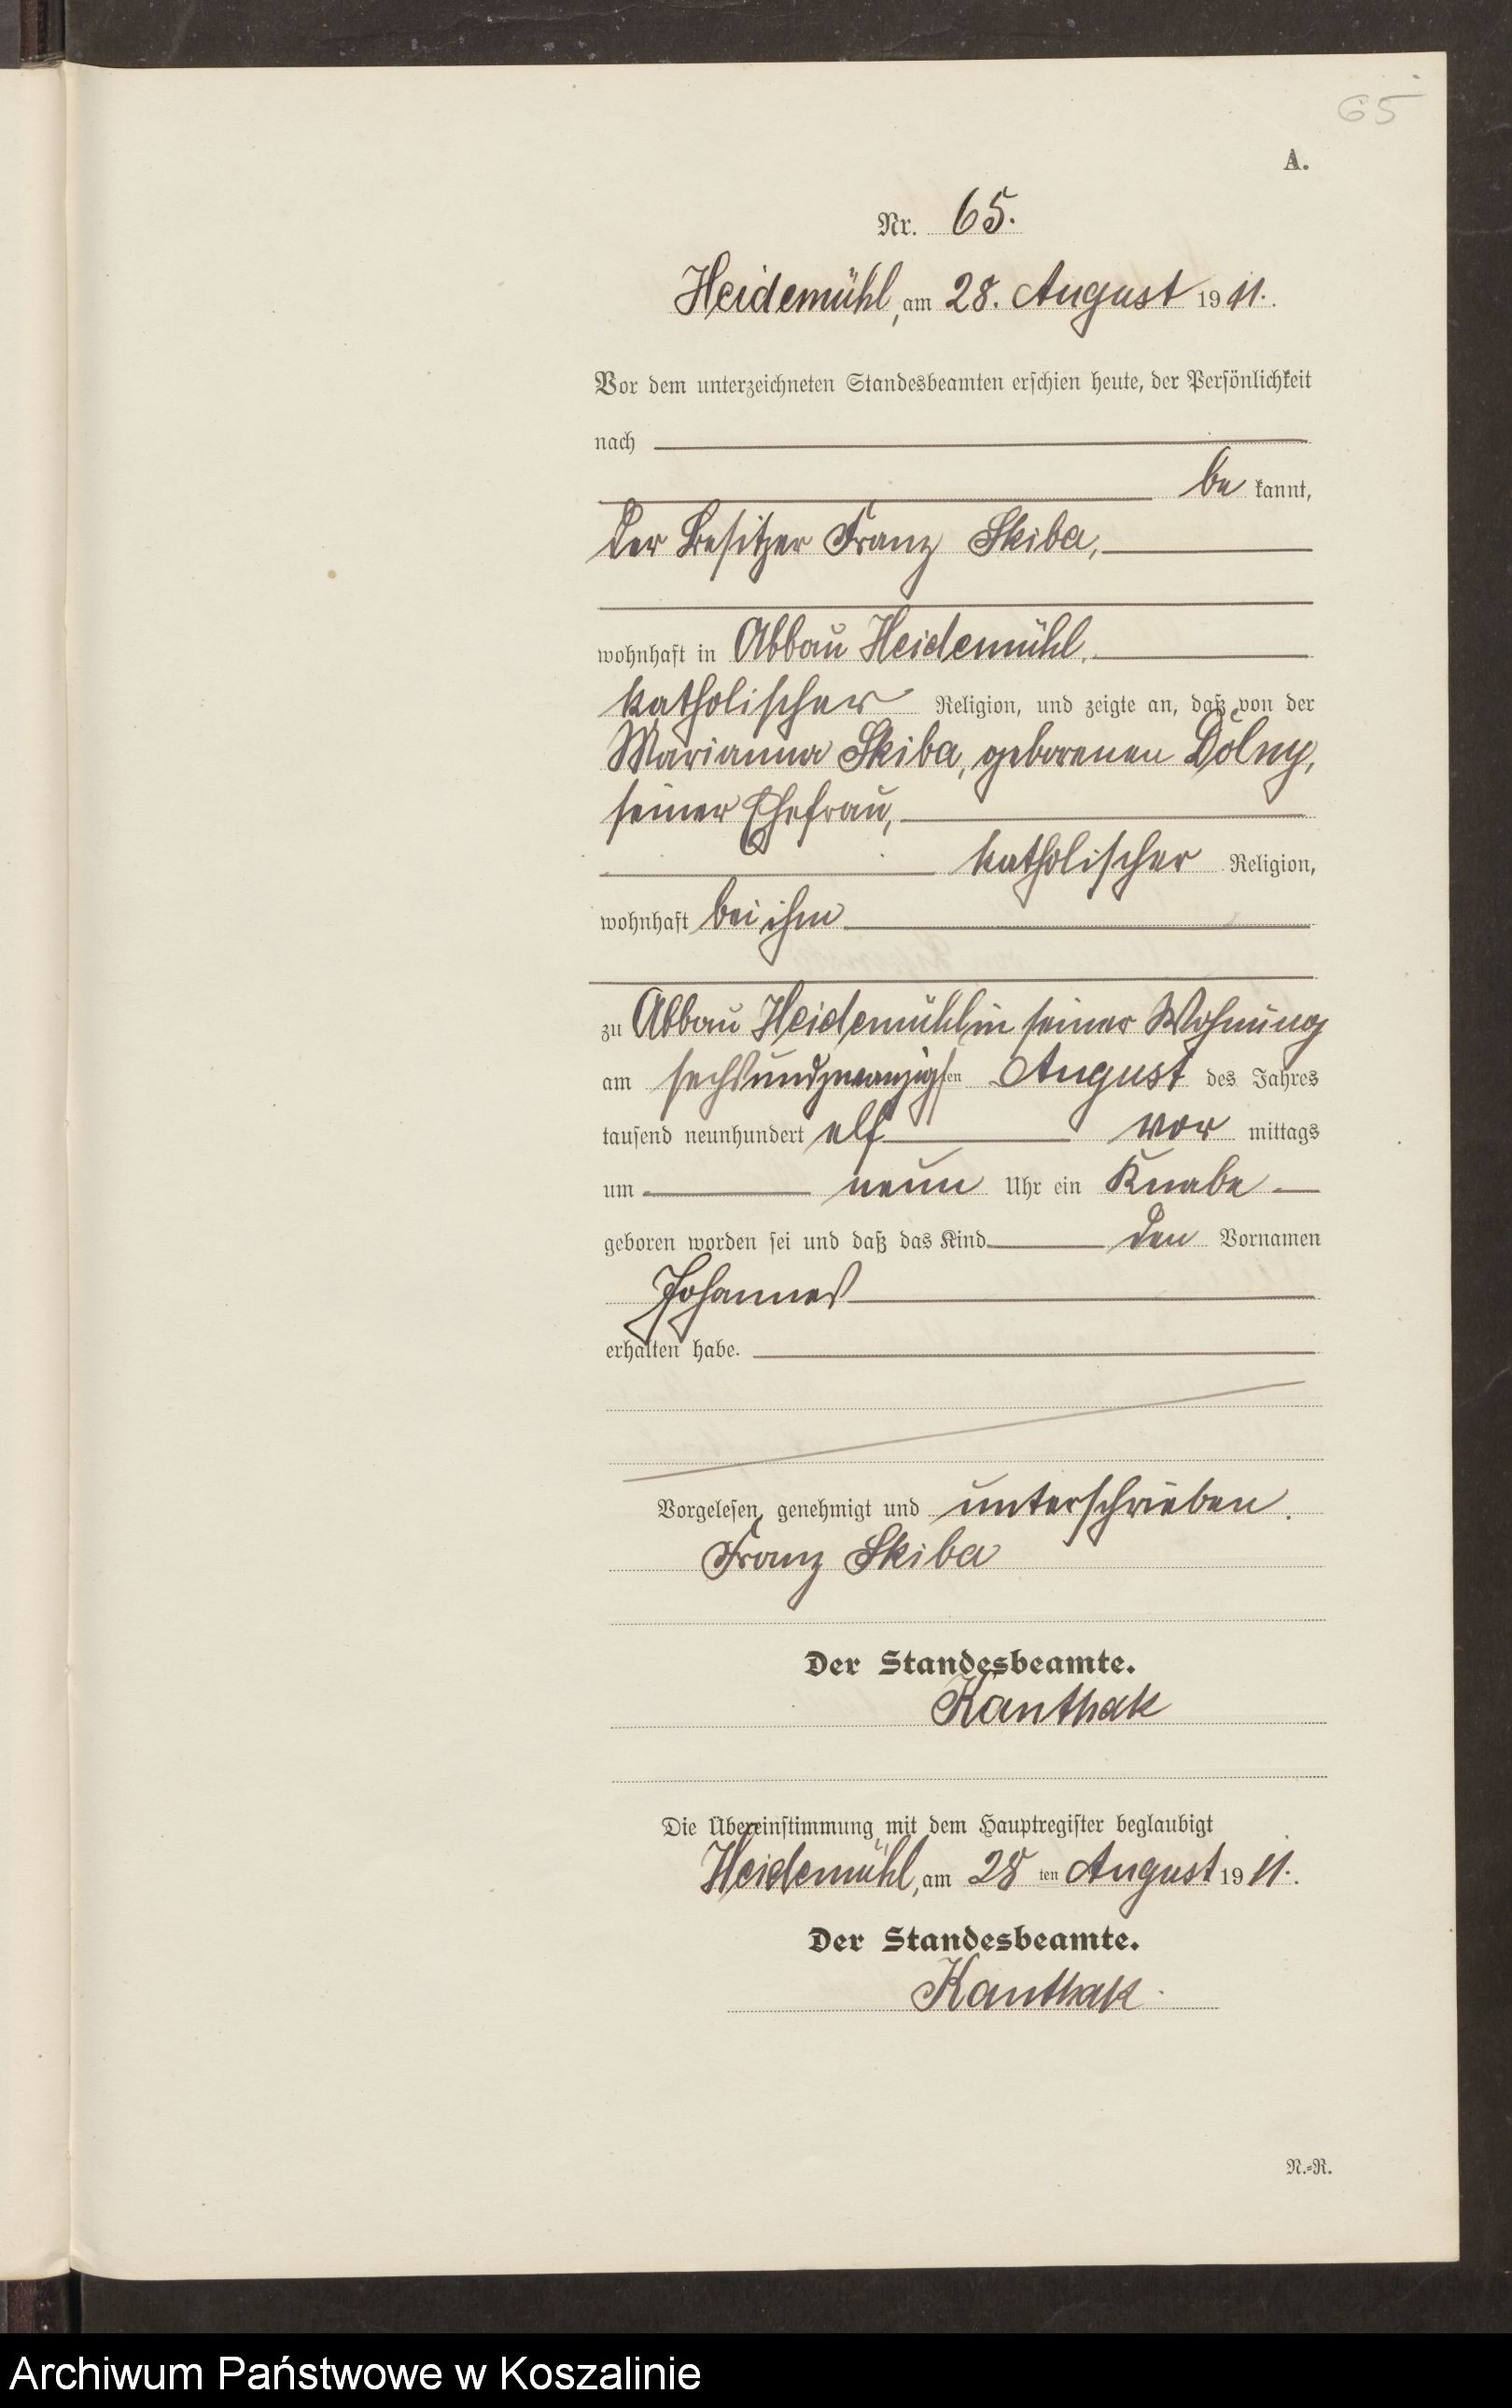 65
A.
Nr. 65.
Heidemühl, am 28. August 1911.
Vor dem unterzeichneten Standesbeamten erschien heute, der Persönlichkeit
nach
be kannt,
der Besitzer Franz Skiba,
wohnhaft in Abbau Heidemühl,
katholischer Religion, und zeigte an, daß von der
Marianna Skiba, geborenen Dólny,
seiner Ehefrau,
katholischer Religion,
wohnhaft bei ihm
zu Abbau Heidemühl in seiner Wohnung
am sechsundzwanzigsten August des Jahres
tausend neunhundert elf vor mittags
um neun Uhr ein Knabe
geboren worden sei und daß das Kind den Vornamen
Johannes
erhalten habe.
Vorgelesen, genehmigt und unterschrieben.
Franz Skiba
Der Standesbeamte.
Kanthak
Die Übereinstimmung mit dem Hauptregister beglaubigt
Heidemühl, am 28 ten August 1911.
Der Standesbeamte.
Kanthak.
N.-R.
Archiwum Państwowe w Koszalinie